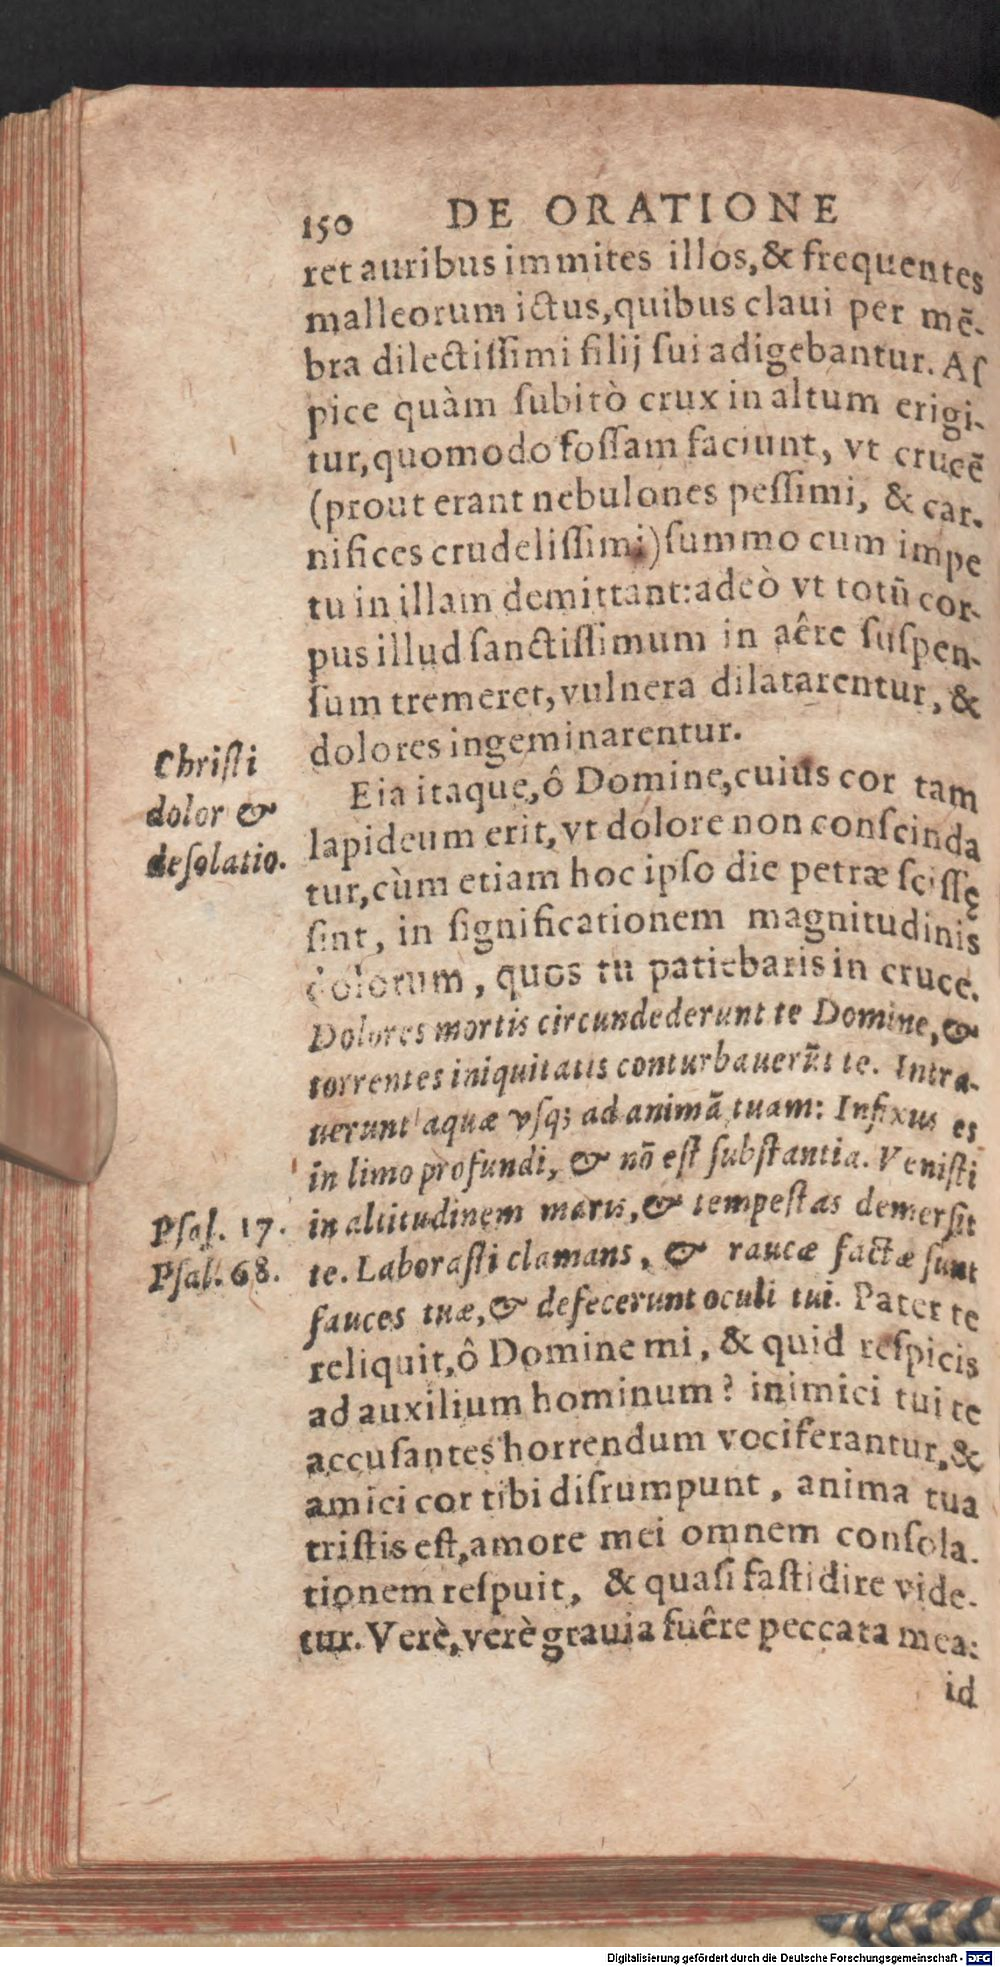 150 DE ORATIONE
ret auribus immites illos, & frequentes
malleorum ictus, quibus claui per mẽ-
bra dilectiſſimi filij ſui adigebantur. Aſ
pice quàm ſubitò crux in altum erigi-
tur, quomodo foſſam faciunt, vt crucẽ
(prout erant nebulones peſſimi, & car-
nifices crudeliſſimi) ſummo cum impe
tu in illam demittant: adeò vt totũ cor-
pus illud ſanctiſſimum in aêre ſuſpen-
ſum tremeret, vulnera dilatarentur, &
dolores ingeminarentur.
Chriſti
dolor &
deſolatio.
Eia itaque, ô Domine, cuius cor tam
lapideum erit, vt dolore non conſcinda
tur, cùm etiam hoc ipſo die petræ ſciſſę
ſint, in ſignificationem magnitudinis
dolorum, quos tu patiebaris in cruce.
Dolores mortis circundederunt te Domine, &
torrentes iniquitatis conturbauerũt te. Intra-
uerunt aquæ vſq; ad animã tuam: Infixus es
in limo profundi, & nõ eſt ſubſtantia. Veniſti
Pſal. 17.
Pſal. 68.
in altitudinem maris, & tempeſtas demerſit
te. Laboraſti clamans, & raucæ factæ ſunt
fauces tuæ, & defecerunt oculi tui. Pater te
reliquit, ô Domine mi, & quid reſpicis
ad auxilium hominum? inimici tui te
accuſantes horrendum vociferantur, &
amici cor tibi diſrumpunt, anima tua
triſtis eſt, amore mei omnem conſola-
tionem reſpuit, & quaſi faſtidire vide-
tur. Verè, verè grauia fuêre peccata mea:
id
Digitalisierung gefördert durch die Deutsche Forschungsgemeinschaft - DFG